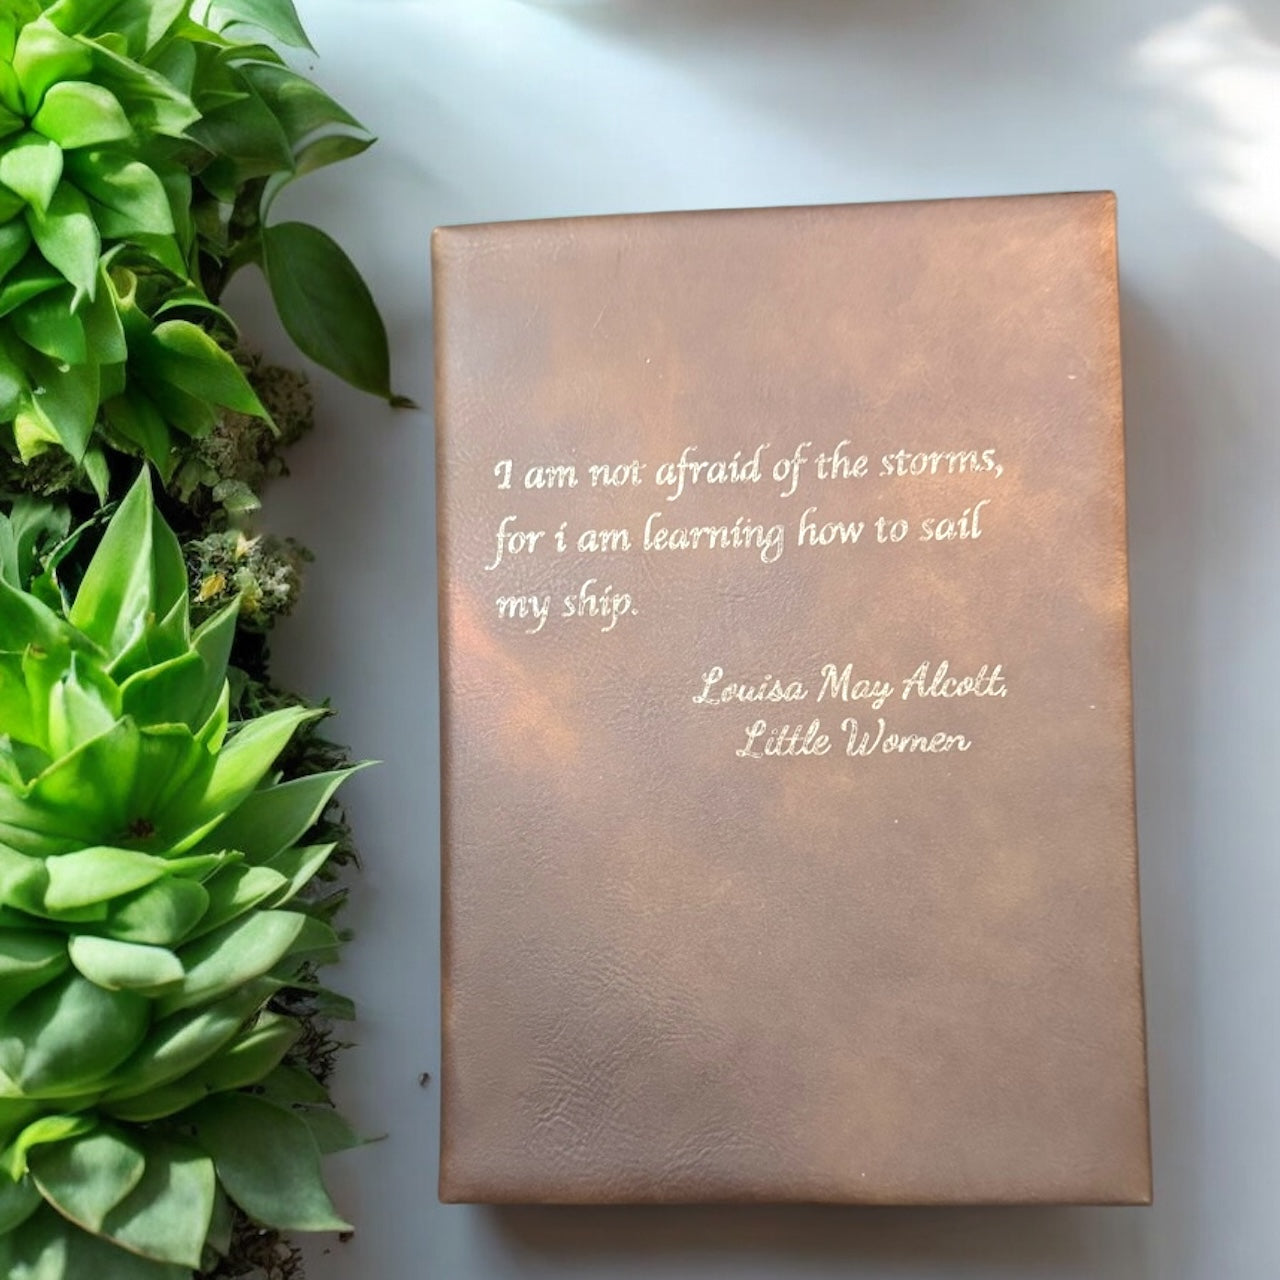 I am not afraid of the storms,
for i am learning how to sail
my ship.
Louisa May Alcott,
Little Women